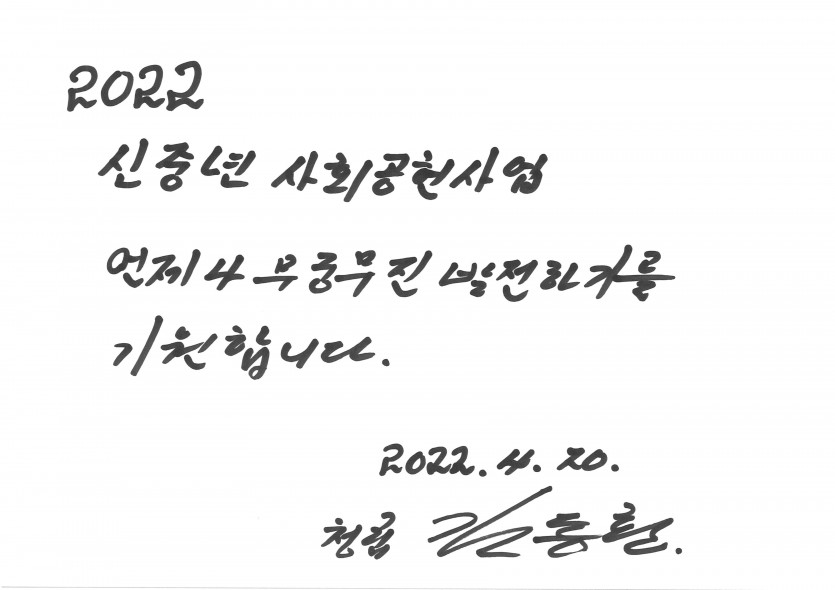 2022
신중년 사회공헌사업
언제나 무궁무진 발전하기를
기원합니다.
2022. 4. 20.
청렴 김동현.